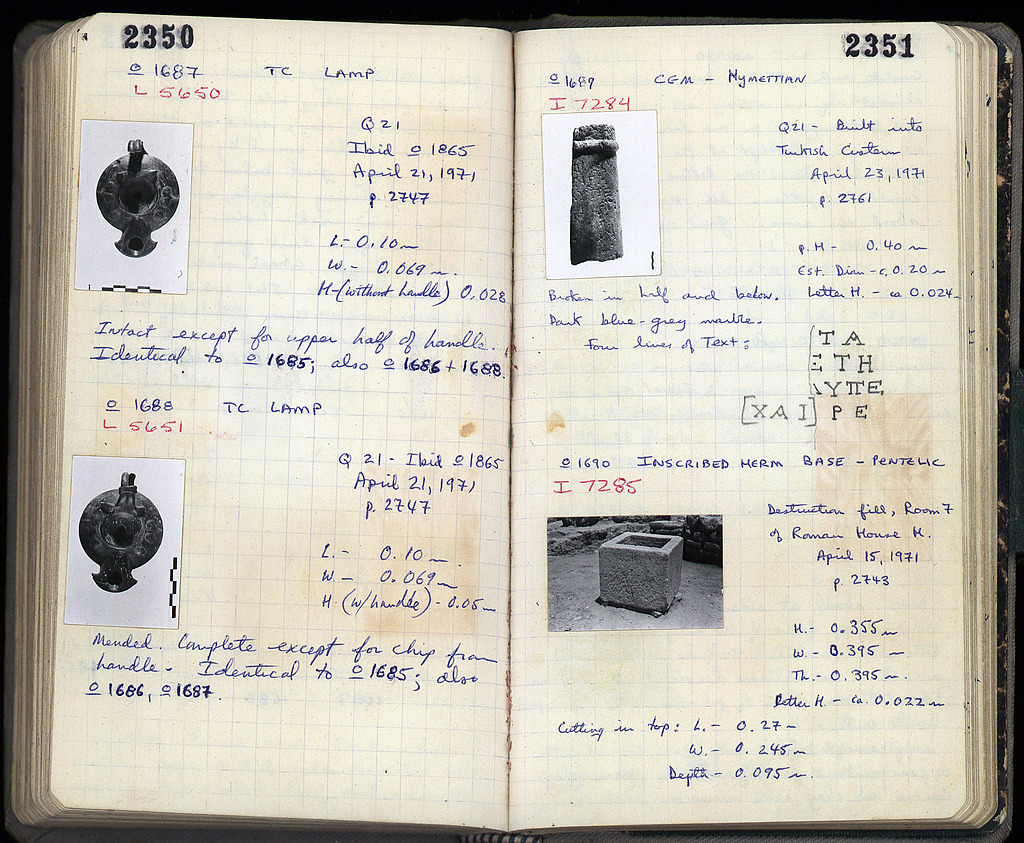 2350
o 1687 TC LAMP
L 5650
Q 21
Ibid o 1865
April 21, 1971
p. 2747
L.- 0.10 m
W.- 0.069 m.
H-(without handle) 0.028
Intact except for upper half of handle.
Identical to o 1685; also o 1686 + 1688.
o 1688 TC LAMP
L 5651
Q 21 - Ibid o 1865
April 21, 1971
p. 2747
L.- 0.10 m
W- 0.069 m
H. (w/handle) - 0.05 m
Mended. Complete except for chip from
handle - Identical to o 1685; also
o 1686, o 1687.
2351
o 1689 CGM - HYMETTIAN
I 7284
Q21 - Built into
Turkish Cistern
April 23, 1971
p. 2761
p. H - 0.40 m
Est. Diam - c. 0.20 m
Broken in half and below. Letter H. - ca 0.024
Dark blue-grey marble.
Four lines of Text:
ΤΑ
ΕΤΗ
ΛΥΠΕ
[ΧΑΙ]ΡΕ
o 1690 INSCRIBED HERM BASE - PENTELIC
I 7285
Destruction fill, Room 7
of Roman House H.
April 15, 1971
p. 2743
H.- 0.355 m
W.- 0.395 m
Th.- 0.395 m.
Letter H. - ca. 0.022 m
Cutting in top: L.- 0.27 m
W.- 0.245 m
Depth - 0.095 m.